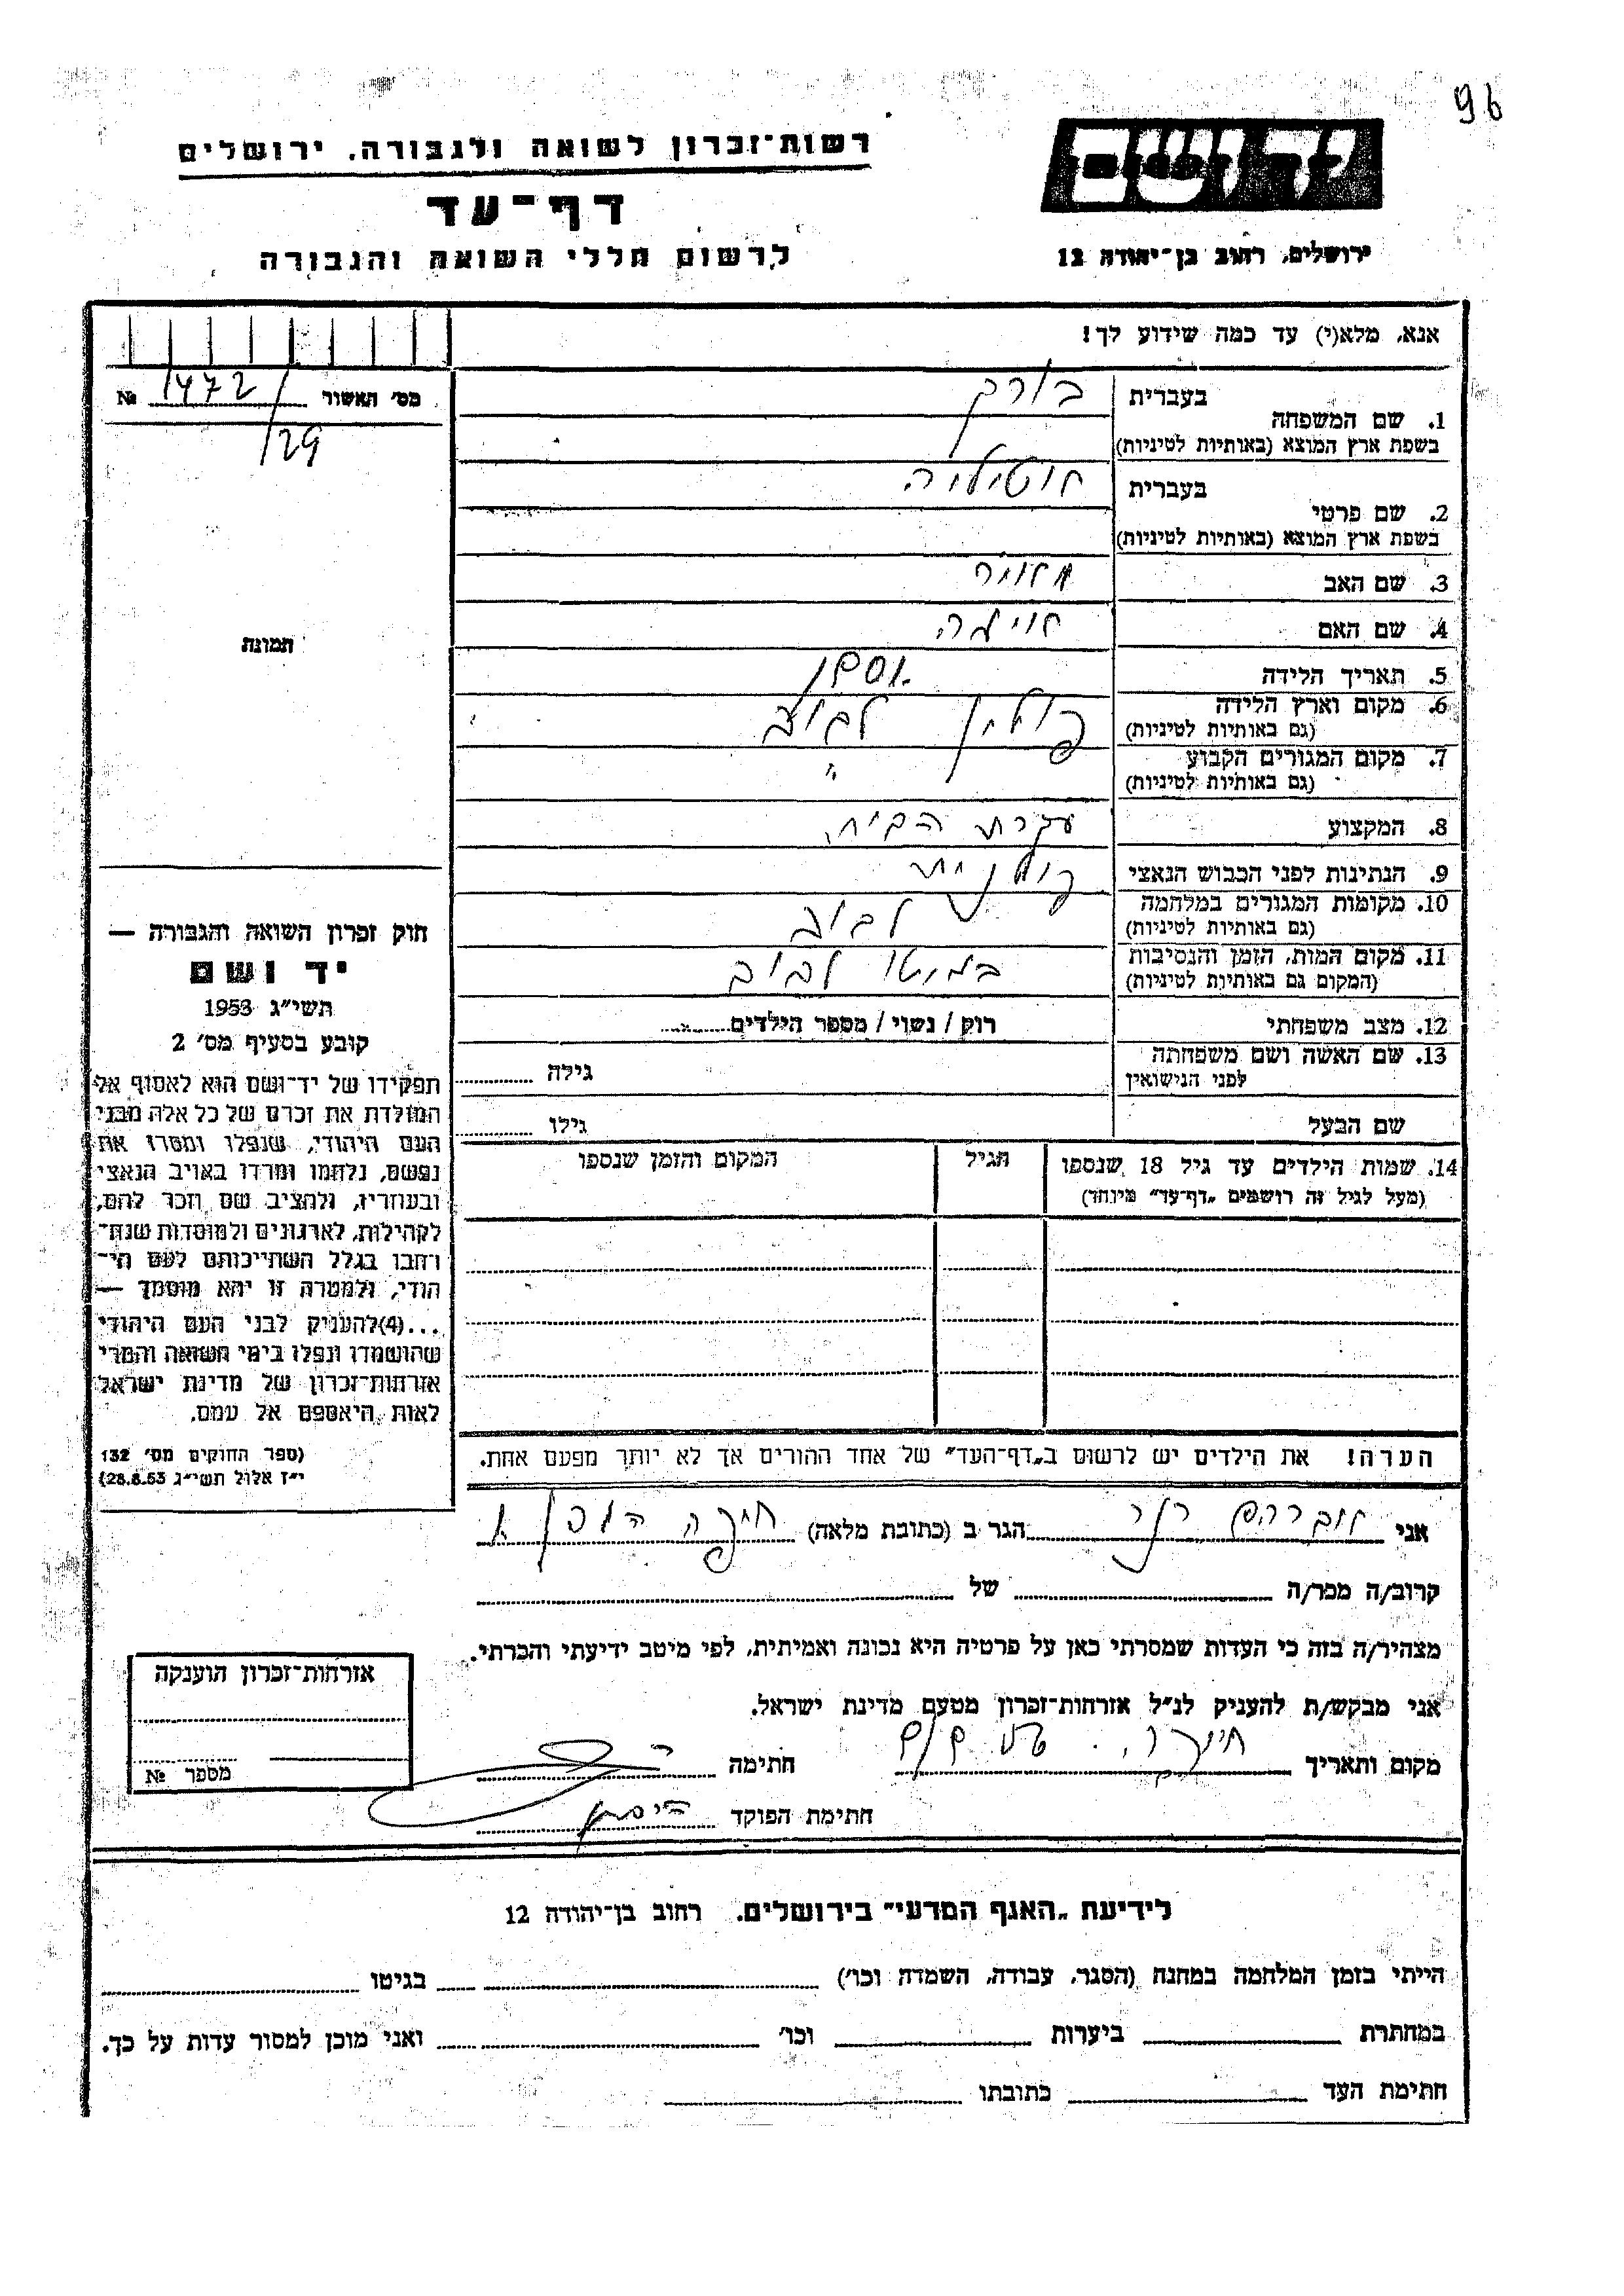 96
רשות־זכרון לשואה ולגבורה. ירושלים
יד ושם
דף־עד
ירושלים, רחוב בן־יהודה 12
לרשום חללי השואה והגבורה
אנא, מלא(י) עד כמה שידוע לך!
מס' האשור 1472 №
/29
1. שם המשפחה
בעברית
בשפת ארץ המוצא (באותיות לטיניות)
2. שם פרטי
בעברית
בשפת ארץ המוצא (באותיות לטיניות)
3. שם האב
4. שם האם
5. תאריך הלידה
6. מקום וארץ הלידה פולין לבוב
(גם באותיות לטיניות)
7. מקום המגורים הקבוע "
(גם באותיות לטיניות)
8. המקצוע עקרת הבית
9. הנתינות לפני הכבוש הנאצי פולנית
10. מקומות המגורים במלחמה לבוב
(גם באותיות לטיניות)
11. מקום המות, הזמן והנסיבות בגיטו לבוב
(המקום גם באותיות לטיניות)
12. מצב משפחתי רוק / נשוי / מספר הילדים
13. שם האשה ושם משפחתה גילה
לפני הנישואין
שם הבעל גילו
14. שמות הילדים עד גיל 18 שנספו הגיל המקום והזמן שנספו
(מעל לגיל זה רושמים „דף־עד" מיוחד)
תמונה
חוק זכרון השואה והגבורה —
יד ושם
תשי"ג 1953
קובע בסעיף מס' 2
תפקידו של יד־ושם הוא לאסוף אל
המולדת את זכרם של כל אלה מבני
העם היהודי, שנפלו ומסרו את
נפשם, נלחמו ומרדו באויב הנאצי
ובעוזריו, ולהציב שם וזכר להם,
לקהילות, לארגונים ולמוסדות שנח־
רחבו בגלל השתייכותם לעם הי־
הודי, ולמטרה זו יהא מוסמך —
...(4)להעניק לבני העם היהודי
שהושמדו ונפלו בימי השואה והמרי
אזרחות־זכרון של מדינת ישראל
לאות היאספם אל עמם.
(ספר החוקים מס' 132
י"ז אלול תשי"ג 28.8.53)
הערה! את הילדים יש לרשום ב„דף־העד" של אחד ההורים אך לא יותר מפעם אחת.
אני אברהם הגר ב (כתובת מלאה) חיפה
קרוב/ה מכר/ה של
מצהיר/ה בזה כי העדות שמסרתי כאן על פרטיה היא נכונה ואמיתית, לפי מיטב ידיעתי והכרתי.
אני מבקש/ת להעניק לנ"ל אזרחות־זכרון מטעם מדינת ישראל.
מקום ותאריך חיפה חתימה
חתימת הפוקד
אזרחות־זכרון הוענקה
מספר №
לידיעת „האגף המדעי" בירושלים. רחוב בן־יהודה 12
הייתי בזמן המלחמה במחנה (הסגר, עבודה, השמדה וכו') בגיטו
במחתרת ביערות וכו' ואני מוכן למסור עדות על כך.
חתימת העד כתובתו